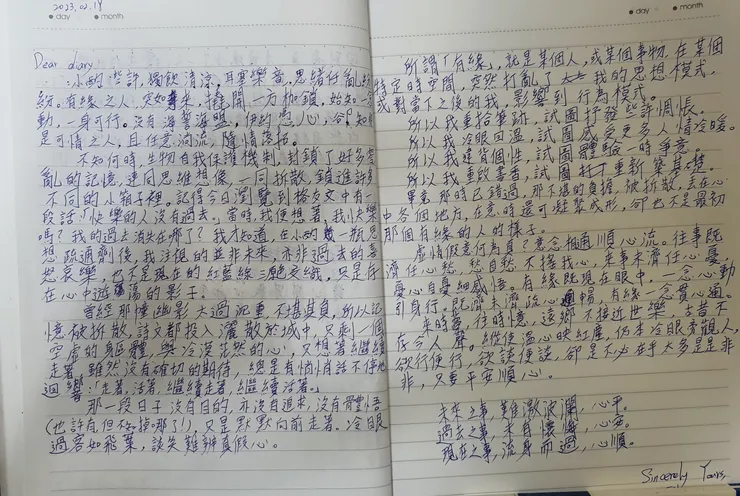 2023.02.19
day month
Dear diary
小酌些許，獨飲清涼，耳塞樂音，思緒任亂紛
紛，有緣之人，突如來，撞開一方枷鎖，始知一
動，一身可行。沒有海誓海盟，伊約思心，卻知
是可情之人，且任意河流，隨情落拓。
不知何時，生物自我保護機制，封鎖了好多
亂的記憶，連同思維想像，一同拆散，鎖進許多
不同的小箱子裡。記得今日瀏覽到格友文中有一
段話「快樂的人沒有過去。」當時，我便想著，我小快樂
嗎？我的過去消失在哪了？我才知道，在小酌幾瓶思
想疏通劑後，我注視的並非未來，亦非過去的喜
怒哀樂，也不是現在的紅藍綠三魄交織，只是存
在心中遊蕩的影子。
曾經那幢幽影，太過沉重，不堪其負，所以記
憶被拆散，詩文都投入灑散於城中，又剩一個
空虛的身軀體，與冷漠茫然的心，又想著繼續
走著，雖然沒有確切的期待，總是有悄悄話不停地
迴響：「走著，活著，繼續走著，繼續活著。」
那一段日子，沒有目的，亦沒有追求，沒有體悟
（也許有，但不知掉哪了！），又是默默向前走著。冷眼
過客如飛葉，談笑難辨真假心。
day month
所謂「有緣」，就是某個人，或某個事物，在某個
特定時空間，突然打亂了我的思想模式，
或對當下之後的我，影響到行為模式。
所以我重拾筆跡，試圖抒發些許惆悵。
所以我冷眼回溫，試圖感受更多人情冷暖。
所以我違背個性，試圖體驗一時爭意。
所以我重啟書香，試圖打下重新築基礎。
畢竟那時已錯過，那不堪的負擔，被拆散，去在心
中各個地方，在意時還可凝聚成形，卻也不是最初
那個有緣的人的樣子。
虛情假意何為真？意念相通順心流。往事既
濟任心愁，愁自愁不擾我心，來事未濟任心憂，
憂心自尋細感悟。有緣既現在眼中，一念心動
引身行。既濟未濟疏心暢，有緣一念貫心通。
來時當，往時憶，遠鄉不接近世樂，古昔不
依今人聲。縱使溫心映紅塵，仍本冷眼看觀人，
欲行便行，欲談便談，卻是不必在乎太多是是非
非，只要平安順心。
未來之事，難激波瀾，心平。
過去之事，未有懷悔，心安。
現在之事，流身而過，心順。
Sincerely Yours,